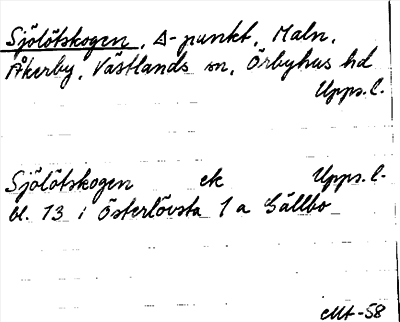 Sjölötskogen, Δ-punkt, Maln.
Åkerby, Västlands sn, Örbyhus hd
Upps. l.
Sjölötskogen ek Upps. l.
bl. 13 i Österlövsta 1 a Gällbo
Mt-58